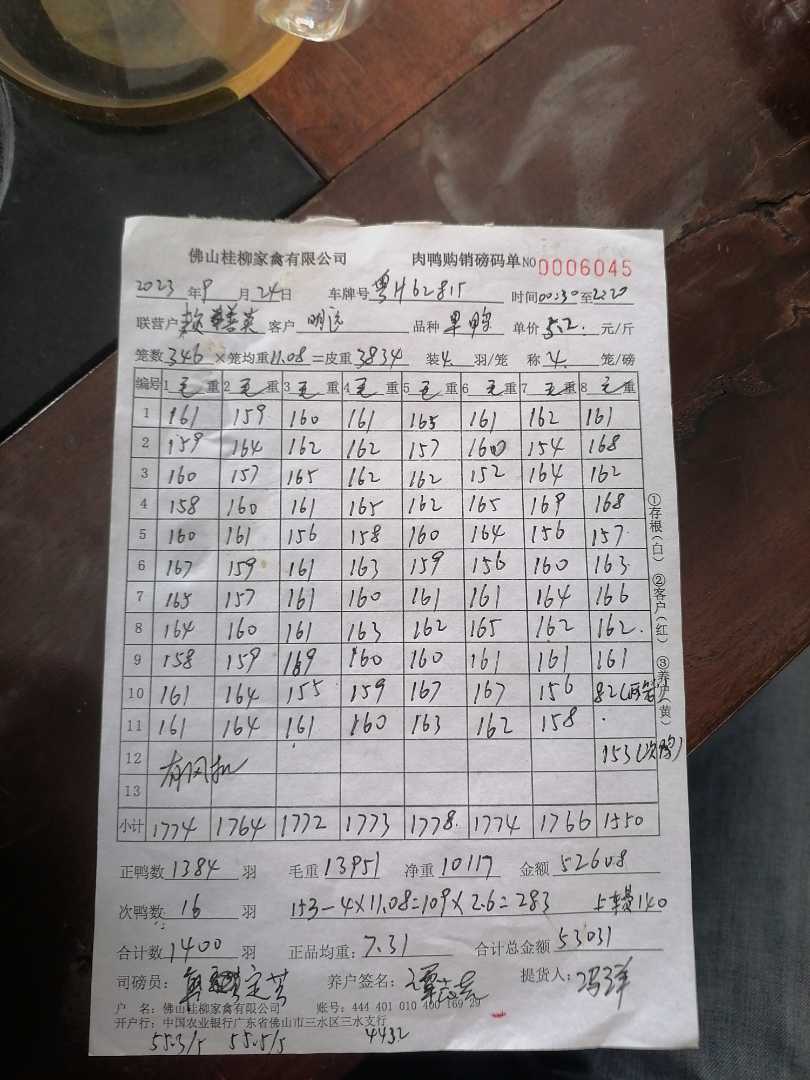 佛山桂柳家禽有限公司 肉鸭购销磅码单NO 0006045
2023年9月24日 车牌号 粤H62815 时间00:30至2:20
联营户 客户 明 品种 单价5.2元/斤
笼数346×笼均重11.08=皮重3834 装4羽/笼 称4笼/磅
编号 1毛重 2毛重 3毛重 4毛重 5毛重 6毛重 7毛重 8毛重
1 161 159 160 161 165 161 162 161
2 159 164 162 162 157 160 154 168
3 160 157 165 162 162 152 164 162
4 158 160 161 165 162 165 169 168
5 160 161 156 158 160 164 156 157
6 167 159 161 163 159 156 160 163
7 165 157 161 160 161 161 164 166
8 164 160 161 163 162 165 162 162
9 158 159 169 160 160 161 161 161
10 161 164 155 159 167 167 156 82(两笼)
11 161 164 161 160 163 162 158
12 有风扣 153(次鸭)
13
小计 1774 1764 1772 1773 1778 1774 1766 1550
①存根(白) ②客户(红) ③养户(黄)
正鸭数1384羽 毛重13951 净重10117 金额52608
次鸭数16羽 153-4×11.08=109×2.6=283 上车费140
合计数1400羽 正品均重:7.31 合计总金额53031
司磅员: 养户签名: 提货人:冯洋
户 名:佛山桂柳家禽有限公司 账号:444 401 010 400 169 29
开户行:中国农业银行广东省佛山市三水区三水支行
55.3/5 55.5/5 4432